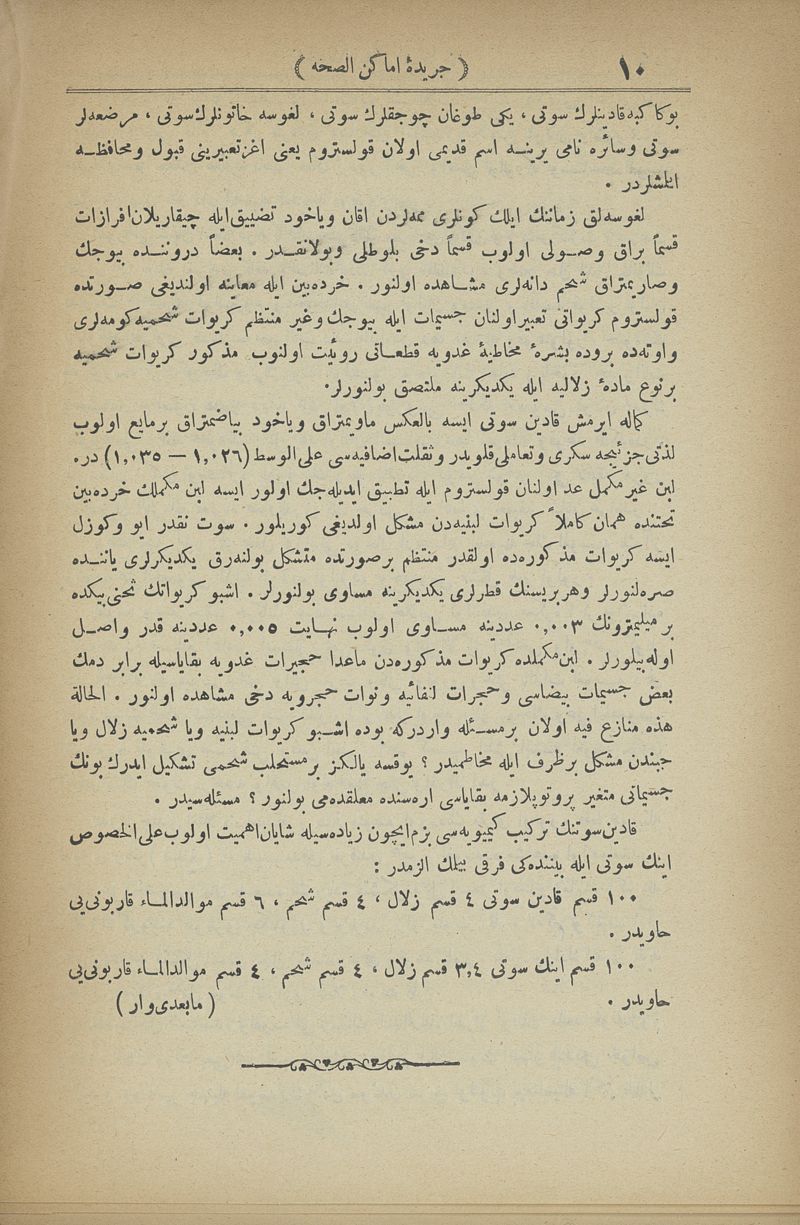 ١٠
( جريدهٔ اماكن الصحه )
بوكا كبه قادينلرك سوتى ، يكى طوغان چوجقلرك سوتى ، لغوسه خاتونلرك سوتى ، مرضعه‌لر
سوتى وسائره نامى يرينه اسم قديمى اولان قولستروم يعنى اغز تعبيرينى قبول ومحافظه
ايتمشلردر .
لغوسه‌لق زماننك ايلك كونلرى ممه‌لردن اقان وياخود تضييق ايله چيقاريلان افرازات
قسماً براق وصولى اولوب قسماً دخى بلوطلى وبولانقدر . بعضاً دروننده بيوجك
وصاريمتراق شحم دانه‌لرى مشاهده اولنور . خرده‌بين ايله معاينه اولنديغى صورتده
قولستروم كريواتى تعبير اولنان جسيمات ايله بيوجك وغير منتظم كريوات شحميه كومه‌لرى
واوته‌ده بروده بشرهٔ مخاطيهٔ غدويه قطعاتى رؤيت اولنوب مذكور كريوات شحميه
برنوع مادهٔ زلاليه ايله يكديكرينه ملتصق بولنورلر.
كماله ايرمش قادين سوتى ايسه بالعكس ماويمتراق وياخود بياضمتراق برمايع اولوب
لذتى جزئيجه سكرى وتعاملى قلويدر وثقلت اضافيه‌سى على الوسط (١,٠٢٦ — ١,٠٣٥) در.
لبن غير مكمل عد اولنان قولستروم ايله تطبيق ايديله‌جك اولور ايسه لبن مكملك خرده‌بين
تحتنده همان كاملاً كريوات لبنيه‌دن مشكل اولديغى كوريلور . سوت نقدر ايو وكوزل
ايسه كريوات مذكوره‌ده اولقدر منتظم برصورتده متشكل بولنه‌رق يكديكرلرى ياننده
صره‌لنورلر وهربريسنك قطرلرى يكديكرينه مساوى بولنورلر . اشبو كريواتك ثخنى بيكده
بر ميليمترونك ٠,٠٠٣ عددينه مساوى اولوب نهايت ٠,٠٠٥ عددينه قدر واصل
اوله‌بيلورلر . لبن مكملده كريوات مذكوره‌دن ماعدا حجيرات غدويه بقاياسيله برابر دمك
بعض جسيمات بيضاسى وحجرات لنفائيه ونوات حجرويه دخى مشاهده اولنور . الحالة
هذه منازع فيه اولان برمسئله واردركه بوده اشبو كريوات لبنيه ويا شحميه زلال ويا
جبندن مشكل برظرف ايله محاطميدر ؟ يوقسه يالكز برمستحلب شحمى تشكيل ايدرك بونك
جسيماتى متغير پروتوپلازمه بقاياسى اره‌سنده معلقده‌مى بولنور ؟ مسئله‌سيدر .
قادين سوتنك تركيب كيميويه‌سى بزم ايچون زياده‌سيله شايان اهميت اولوب على الخصوص
اينك سوتى ايله بيننده‌كى فرقى بيلمك الزمدر :
١٠٠ قسم قادين سوتى ٤ قسم زلال ، ٤ قسم شحم ، ٦ قسم موالدالماء قاربونى‌يى
حاويدر .
١٠٠ قسم اينك سوتى ٣,٤ قسم زلال ، ٤ قسم شحم ، ٤ قسم موالدالماء قاربونى‌يى
حاويدر .
( مابعدى وار )